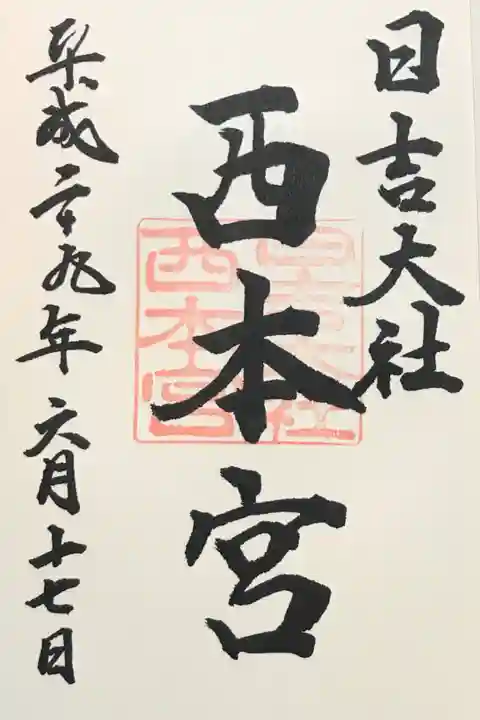 日吉大社
西本宮
平成二十九年 六月十七日
日吉大社
西本宮